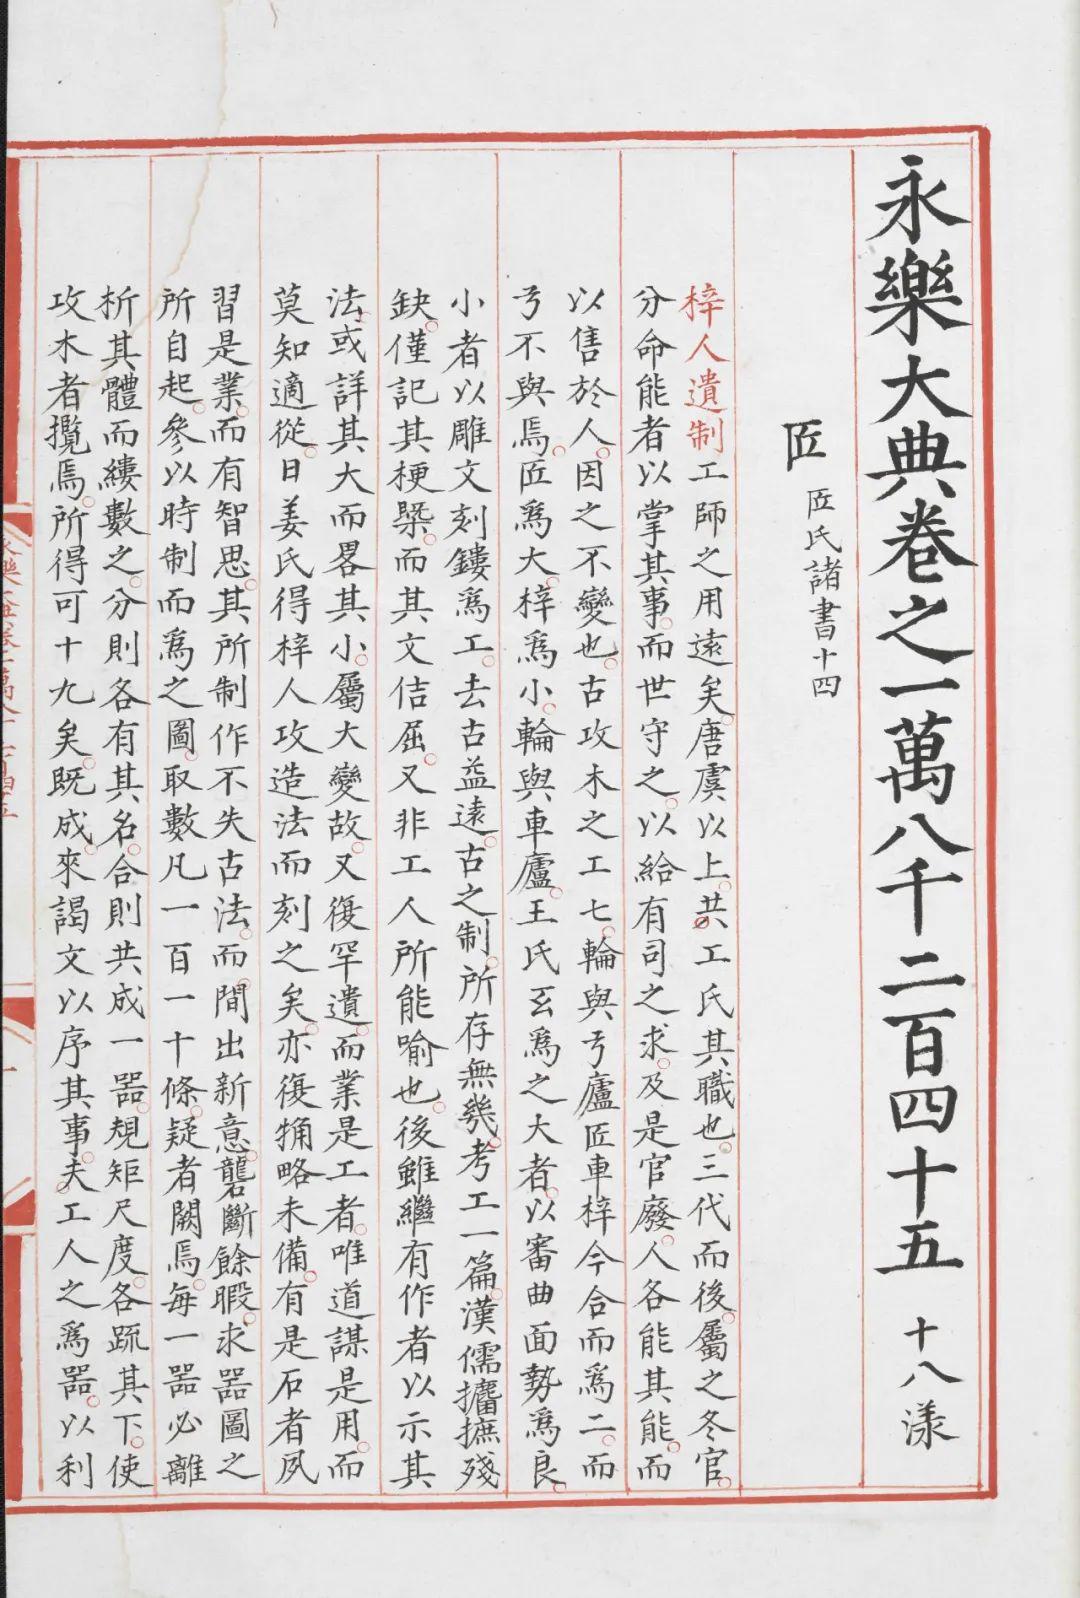 永樂大典卷之一萬八千二百四十五 十八漾
匠 匠氏諸書十四
梓人遺制工師之用遠矣唐虞以上共工氏其職也三代而後屬之冬官
分命能者以掌其事而世守之以給有司之求及是官廢人各能其能而
以售於人因之不變也古攻木之工七輪輿弓廬匠車梓今合而爲二而
弓不與焉匠爲大梓爲小輪輿車廬王氏云爲之大者以審曲面勢爲良
小者以雕文刻鏤爲工去古益遠古之制所存無幾考工一篇漢儒攟摭殘
缺僅記其梗槩而其文佶屈又非工人所能喻也後雖繼有作者以示其
法或詳其大而畧其小屬大變故又復罕遺而業是工者唯道謀是用而
莫知適從日姜氏得梓人攻造法而刻之矣亦復觕略未備有是石者夙
習是業而有智思其所制作不失古法而間出新意礱斷餘暇求器圖之
所自起參以時制而爲之圖取數凡一百一十條疑者闕焉每一器必離
析其體而縷數之分則各有其名合則共成一器規矩尺度各疏其下使
攻木者攬焉所得可十九矣既成來謁文以序其事夫工人之爲器以利